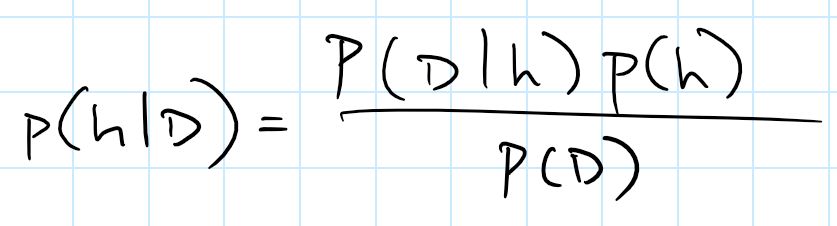 p(h|D) = P(D|h) p(h)
P(D)